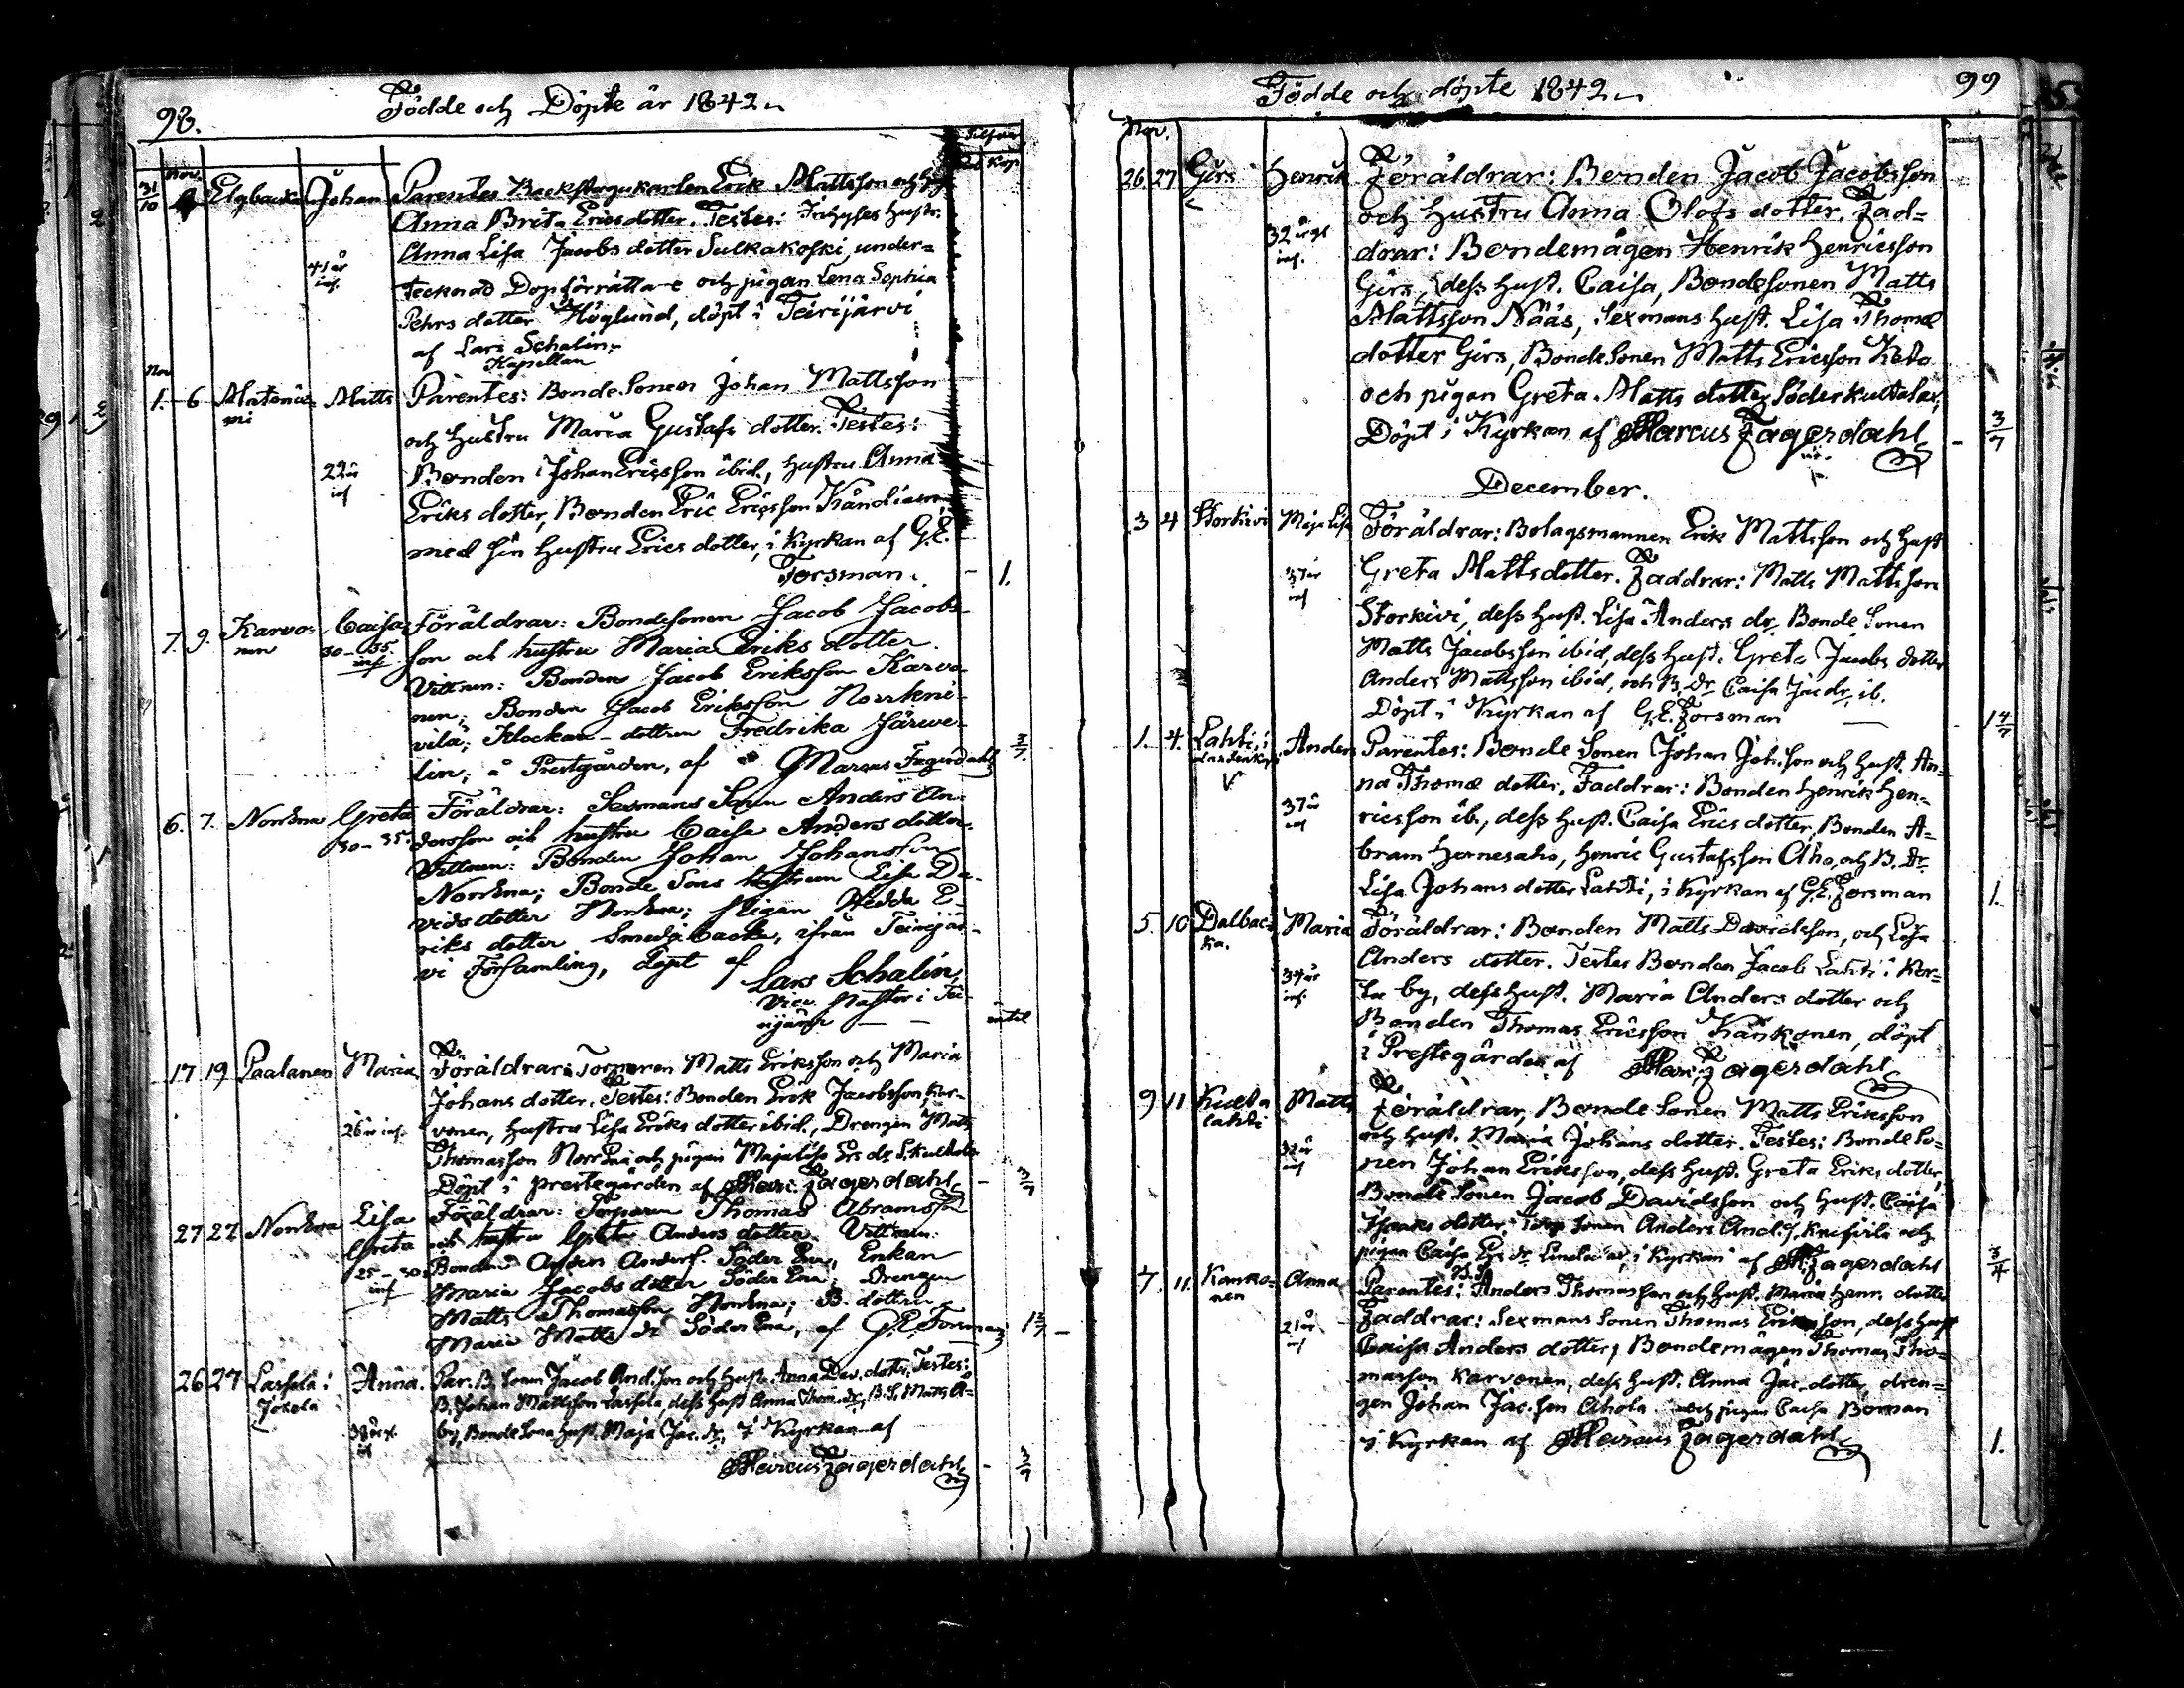 98.
Födde och Döpte år 1842
Silfver
Kop
Nov.
31/10 Elgbacka Johan Parentes Backstugukarlen Erik Mattsson och H.
Anna Brita Ericsdotter. Testes: Inhyses hustr.
41 år Anna Lisa Jacobsdotter Sulkakoski, under=
inf. tecknad Dopförrätta-e och pigan Lena Sophia
Pehrs dotter Höglund, döpt i Teirijärvi
af Lars Schalin,
Kapellan
Nov
1. 6 Matts Parentes: Bonde Sonen Johan Mattsson
och Hustru Maria Gustafs dotter. Testes:
22 år Bonden Johan Ericsson ibid., hustru Anna
inf Eriks dotter, Bonden Eric Ericsson
med sin hustru Erics dotter, i Kyrkan af G.E.
Forsman. - 1.
7. 9. Karvo= Caisa Föräldrar: Bondesonen Jacob Jacobs-
nen 30-35. son och hustru Maria Eriks dotter.
inf Vittnen: Bonden Jacob Eriksson Karvo-
nen; Bonden Jacob Eriksson
vilä; Klockare-dottren Fredrika Järve-
lin; å Prestgården, af Marcus Fagerdahl 3/7.
6. 7. Norrena Greta Föräldrar: Sexmans Sonen Anders An-
30-35. dersson och hustru Caisa Anders dotter.
Vittnen: Bonden Johan Johansson
Norrena; Bonde Sons hustrun Lisa Da-
vids dotter Norrena; Pigan Hedda E-
riks dotter Smedjebacka, ifrån Teirijär-
vi Församling, döpt af
Lars Schalin,
Vice Pastor i Tei-
rijärfvi — —
17 19 Paalanen Maria Föräldrar: Torparen Matts Eriksson och Maria
Johans dotter. Testes: Bonden Erik Jacobsson Kar-
26 år inf. vonen, hustru Lisa Eriks dotter ibid., Drengen Matts
Thomasson Norrena och pigan Majalisa Ers dr
Döpt i prestegården af Marc. Fagerdahl - 3/7
27 27 Norrena Lisa Föräldrar: Torparen Thomas Abramsson
Greta och hustru Greta Anders dotter. Vittnen:
25-30 Bonden Anders Anderss. Söder Ena, Enkan
inf Maria Jacobs dotter Söder Ena; Drengen
Matts Thomasson Norrena; B. dottren
Maria Matts dr Söder Ena, af G.E. Forsman
26 27 Lassila i Anna. Par. B. Sonen Jacob And.son och Hust. Anna Dav. dotter, Testes:
Jokela B. Johan Mattsson Lassila, dess hust Anna Thom. dr, B.S. Matts
by, Bonde Sons hust. Maja Jac. dr, i Kyrkan af
Marcus Fagerdahl - 3/7
99
Födde och döpte 1842
Nov.
26 27 Girs Henrik Föräldrar: Bonden Jacob Jacobsson
och hustru Anna Olofs dotter. Fad=
32 årgl drar: Bondemågen Henrik Henricsson
inf. Girs, dess hust. Caisa, Bondesonen Matts
Mattsson Nääs, Sexmans hust. Lisa Thomæ
dotter Girs, Bonde Sonen Matts Ericsson Keto
och pigan Greta Matts dotter
Döpt i Kyrkan af Marcus Fagerdahl - 3/7
December.
3 4 Storkivi Maja Lisa Föräldrar: Bolagsmannen Erik Mattsson och hust
37 år Greta Mattsdotter. Faddrar: Matts Mattsson
inf Storkivi, dess hust. Lisa Anders dr, Bonde Sonen
Matts Jacobsson ibid, dess hust. Greta Jacobs dotter
Anders Mattsson ibid, och B. dr Caisa Jac dr, ib.
Döpt i Kyrkan af G.E. Forsman
1. 4. Lahti, i Anders Parentes: Bonde Sonen Johan Joh.son och hust. An-
na Thomæ dotter. Faddrar: Bonden Henrik Hen-
37 år ricsson ib., dess hust. Caisa Erics dotter, Bonden A-
inf bram Hernesaho, Henric Gustafsson Aho, och B. dr
Lisa Johans dotter Lahti, i Kyrkan af G.E. Forsman 1.
5. 10 Dalbac= Maria Föräldrar: Bonden Matts Davidsson, och Lisa
ka. Anders dotter. Testes Bonden Jacob Lahti i Kor-
inf. la by, dess hust. Maria Anders dotter och
Bonden Thomas Ericsson Känkonen, döpt
i Prestegården af Marc. Fagerdahl
9 11 Matts Föräldrar, Bonde Sonen Matts Eriksson
lahti och hust. Maria Johans dotter. Testes: Bonde So-
32 år nen Johan Eriksson, dess hust. Greta Eriks dotter,
inf Bonde Sonen Jacob Davidsson och hust. Caisa
Isaaks dotter, Torp Sonen Anders And.s. Knifsilä och
pigan Caisa Ers dr i Kyrkan af M. Fagerdahl 3/4
7. 11. Kanko= Anna Parentes: B.S. Anders Thomasson och hust. Maria Henr. dotter
nen Faddrar: Sexmans Sonen Thomas Eriksson, dess hust
21 år Caisa Anders dotter, Bondemågen Thomas Tho-
inf masson Karvonen, dess hust. Anna Jac. dotter, dren-
gen Johan Jac.son Ahola och pigan Caisa Boman
i Kyrkan af Marcus Fagerdahl 1.